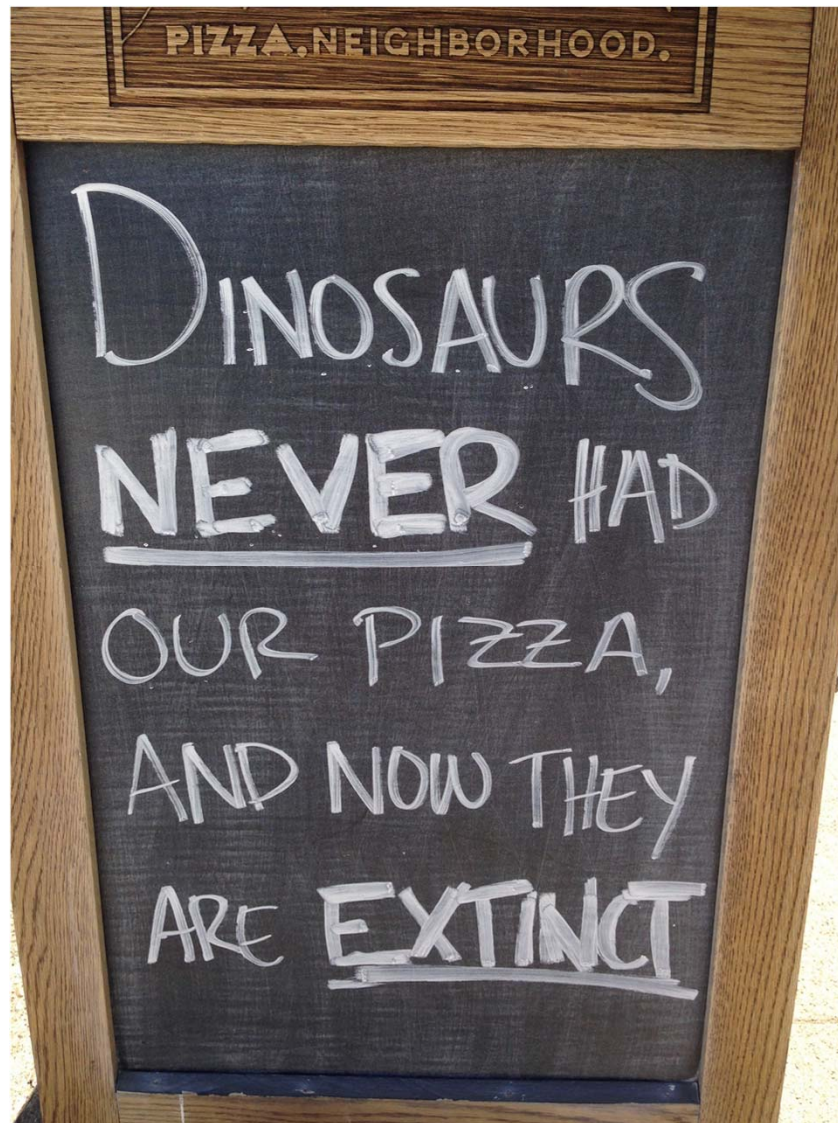 PIZZA, NEIGHBORHOOD.
DINOSAURS
NEVER HAD
OUR PIZZA,
AND NOW THEY
ARE EXTINCT